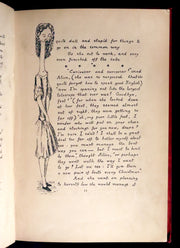 quite dull and stupid for things to
go on in the common way.
So she set to work, and very
soon finished off the cake.
* * * * *
"Curiouser and curiouser!" cried
Alice, (she was so surprised that she
quite forgot how to speak good English)
"now I'm opening out like the largest
telescope that ever was! Goodbye,
feet!" (for when she looked down
at her feet, they seemed almost
out of sight, they were getting so
far off,) "oh, my poor little feet, I
wonder who will put on your shoes
and stockings for you now, dears!
I'm sure I can't! I shall be a great
deal too far off to bother myself about
you: you must manage the best
way you can — but I must be kind
to them", thought Alice, "or perhaps
they won't walk the way I want
to go! Let me see: I'll give them
a new pair of boots every Christmas."
And she went on planning
to herself how she would manage it
11